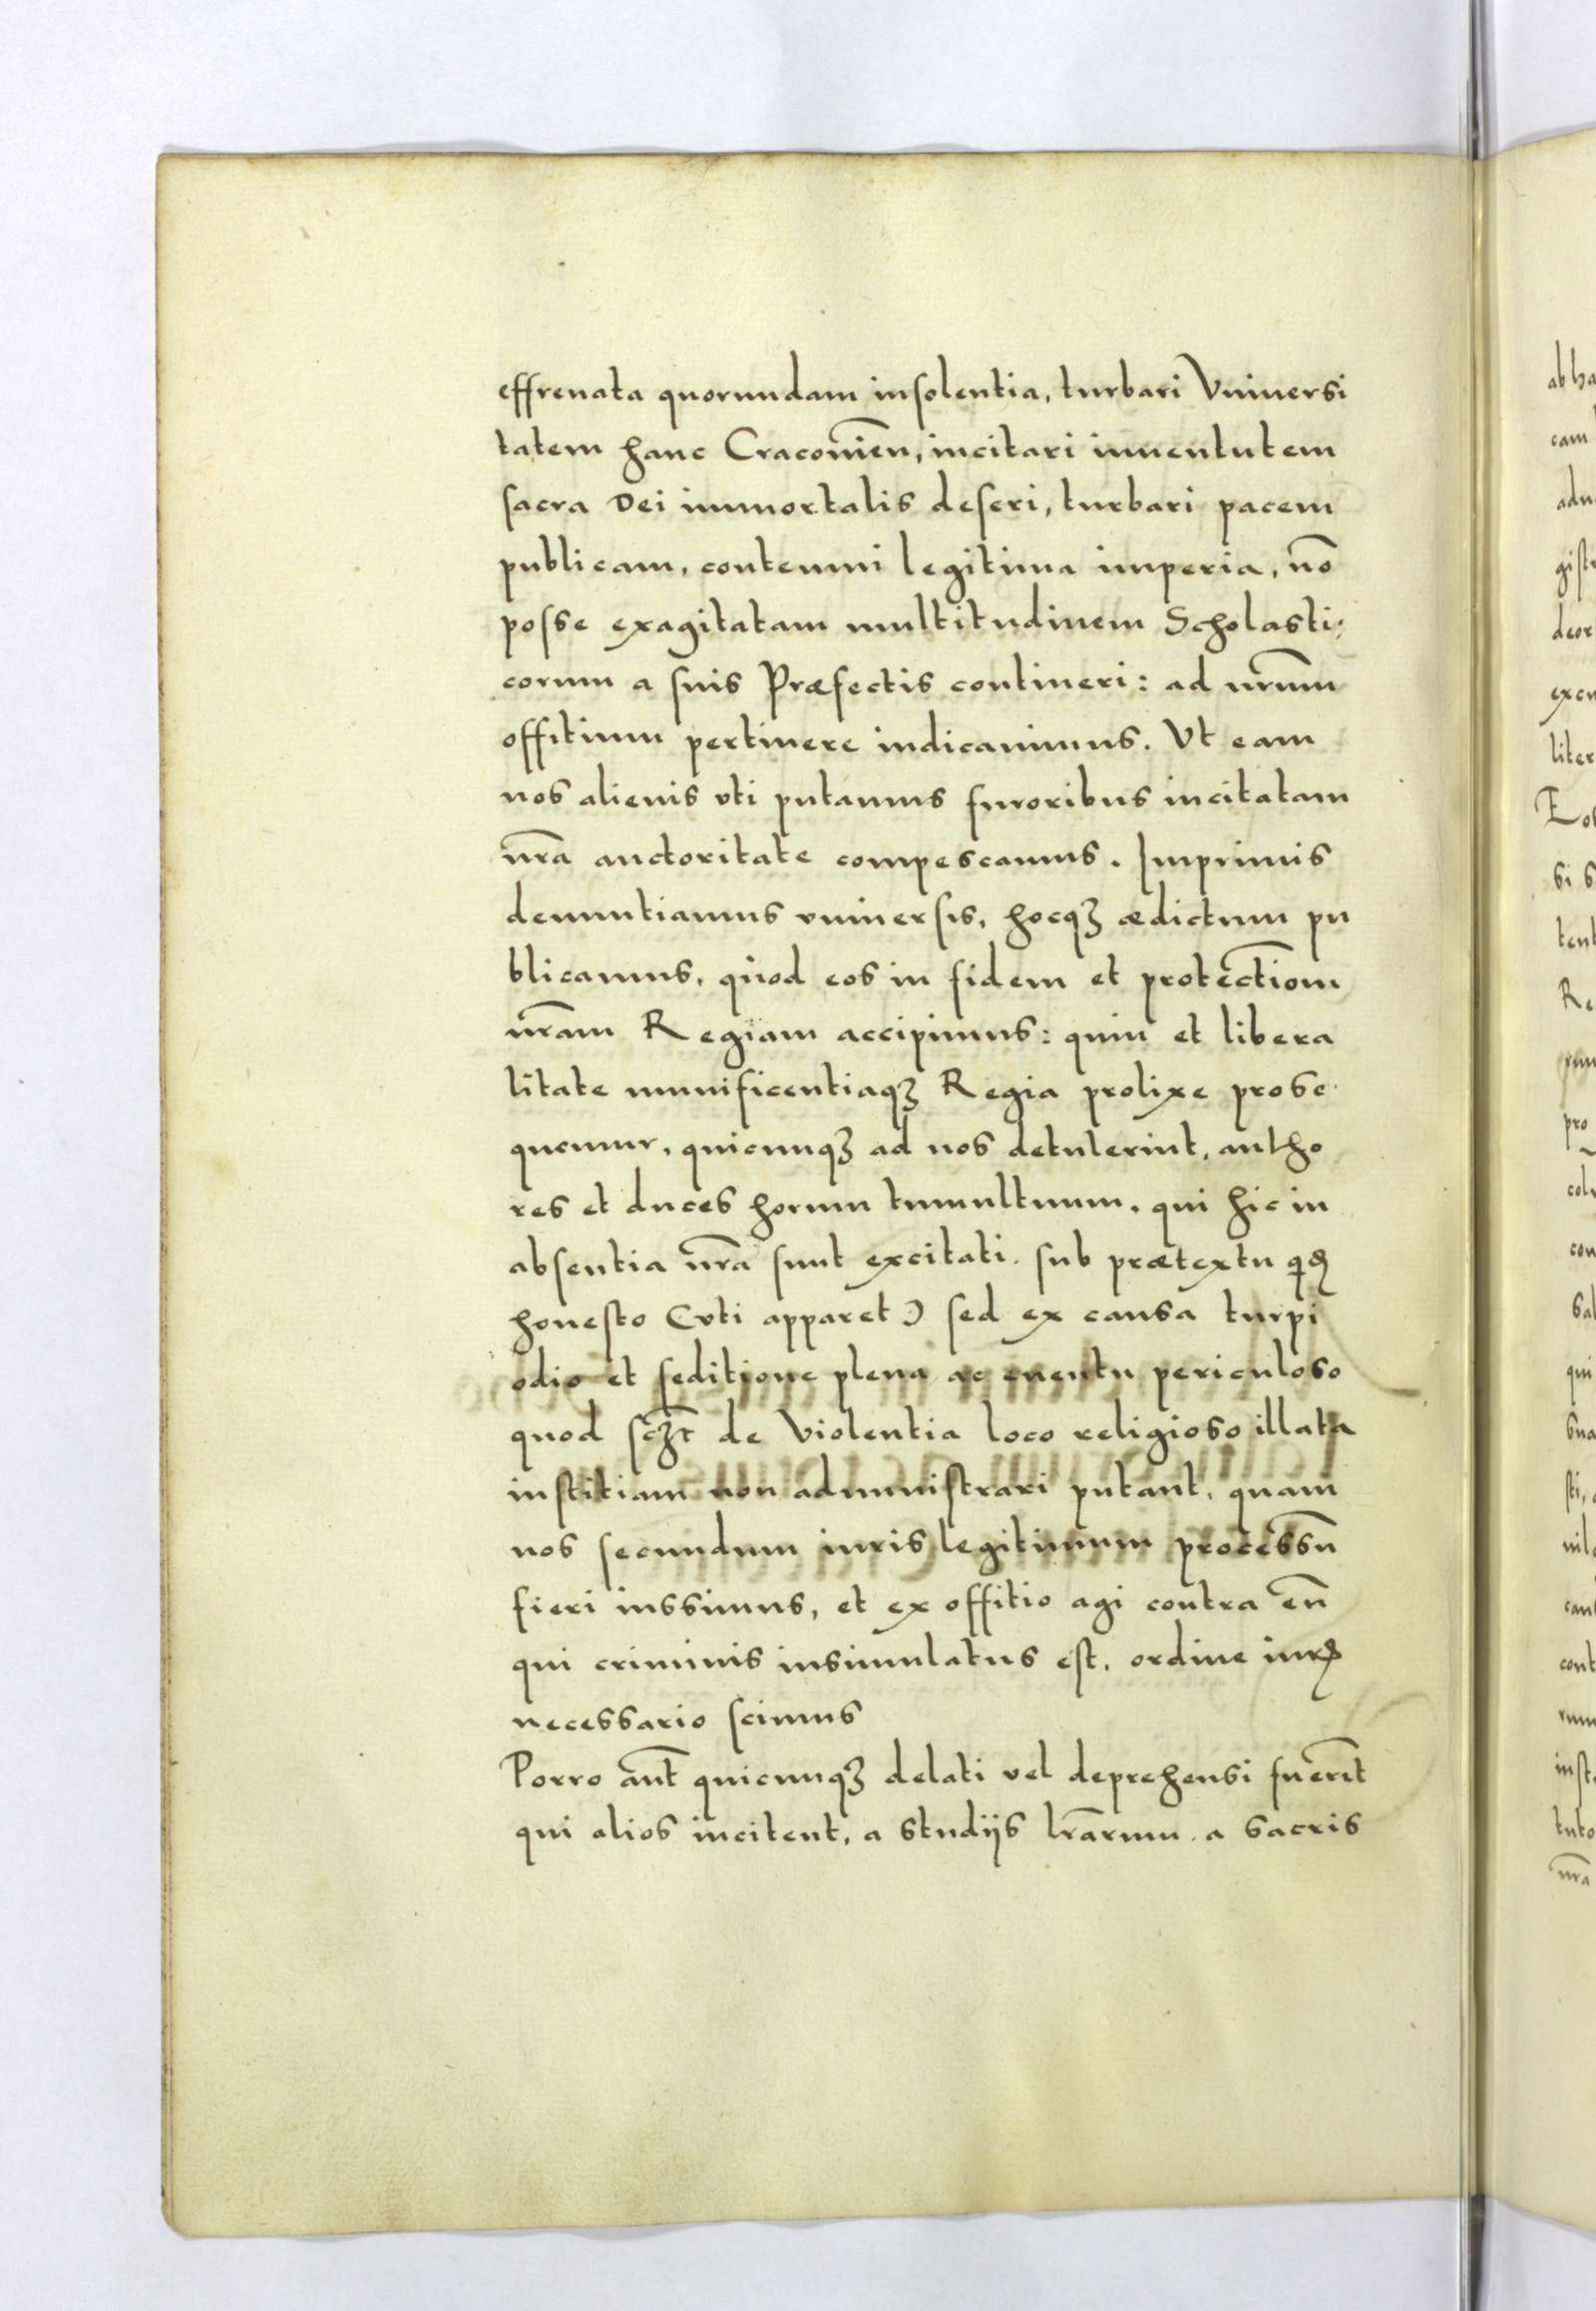 effrenata quorundam insolentia, turbari Vniuersi
tatem hanc Cracouien̄, incitari iuuentutem
sacra Dei immortalis deseri, turbari pacem
publicam, contemni legitima imperia, nō
posse exagitatam multitudinem Scholasti:
corum a suis Præfectis contineri: ad nr̄um
offitium pertinere iudicauimus. Vt eam
nos alienis vti putamus furoribus incitatam
nr̄a auctoritate compescamus. Imprimis
denuntiamus vniuersis, hocqꝫ ædictum pu
blicamus, quod eos in fidem et protectiom̄
nr̄am Regiam accipimus: quin et libera
litate munificentiaqꝫ Regia prolixe prose
quemur, quicunqꝫ ad nos detulerint, autho
res et duces horum tumultuum, qui hic in
absentia nr̄a sunt excitati. sub prætextu qͥdē
honesto (vti apparet) sed ex causa turpi
odio et seditione plena ac euentu periculoso
quod scꝫt de Violentia loco religioso illata
iustitiam non administrari putant, quam
nos secundum iuris legitimum processū
fieri iussimus, et ex offitio agi contra eū
qui criminis insimulatus est, ordine iurꝭ
necessario scimus
Porro aut̄ quicunqꝫ delati vel deprehensi fuerīt
qui alios incitent, a studijs lr̄arum. a sacris
ab ha
cam
adu
gist
deor
excu
liter
Eos
si s
tent
Re
rum
pro
col
con
sal
qui
sua
sti,
uil
cau
cont
rum
inst
tuto
nr̄a